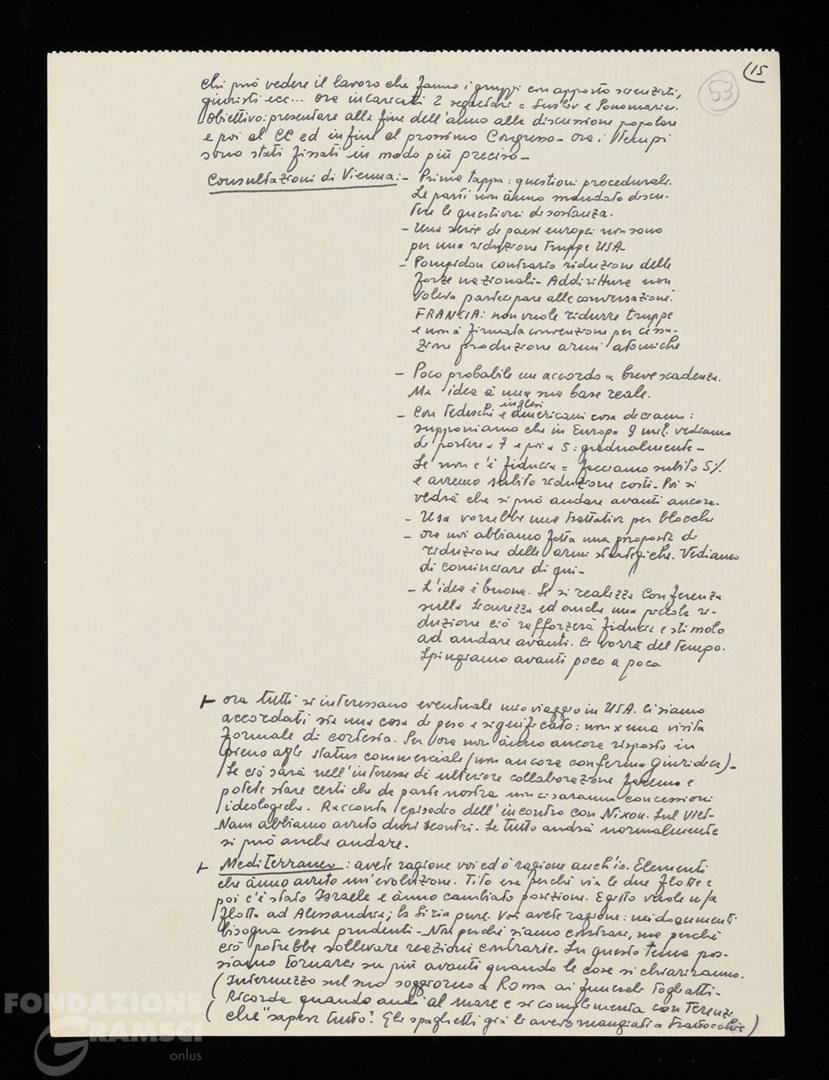 15
53
chi può vedere il lavoro che fanno i gruppi con apposto scienziati,
giuristi ecc... ora incaricati 2 segretari = Suslov e Ponomariov.
Obiettivo: presentare alla fine dell'anno alla discussione popolare
e poi al CC ed infine al prossimo Congresso - ora i tempi
sono stati fissati in modo più preciso -
Consultazioni di Vienna: - Prima tappa: questioni procedurali.
Le parti non ànno mandato discu-
tere le questioni di sostanza.
- Una serie di paesi europei non sono
per una riduzione truppe USA.
- Pompidou contrario riduzione delle
forze nazionali - Addirittura non
voleva partecipare alle conversazioni.
FRANCIA: non vuole ridurre truppe
e non à firmata convenzione per cessa-
zione produzione armi atomiche
- Poco probabile un accordo a breve scadenza.
Ma idea à una sua base reale.
- Con tedeschi e inglesi americani cosa diciamo:
supponiamo che in Europa 9 mil. vediamo
di portare a 7 e poi a 5: gradualmente -
Se non c'è fiducia = facciamo subito 5%
e avremo subito riduzione costi - Poi si
vedrà che si può andare avanti ancora.
- Usa vorrebbe una trattativa per blocchi
- ora noi abbiamo fatta una proposta di
riduzione delle armi strategiche. Vediamo
di cominciare di qui -
- L'idea è buona. Se si realizza Conferenza
sulla sicurezza ed anche una piccola ri-
duzione ciò rafforzerà fiducia e stimolo
ad andare avanti. Ci vorrà del tempo.
Spingiamo avanti poco a poco
+ ora tutti si interessano eventuale mio viaggio in USA. Ci siamo
accordati sia una cosa di peso e significato: non x una visita
formale di cortesia. Per ora non ànno ancora risposto in
pieno agli status commerciale (non ancora conferma giuridica) -
Se ciò sarà nell'interesse di ulteriore collaborazione faremo e
potete stare certi che da parte nostra non ci saranno concessioni
ideologiche. Racconta episodio dell'incontro con Nixon. Sul Viet-
Nam abbiamo avuto duri scontri. Se tutto andrà normalmente
si può anche andare.
+ Mediterraneo: avete ragione voi ed ò ragione anch'io. Elementi
che ànno avuto un'evoluzione. Tito era perché via le due flotte e
poi c'è stato Israele e ànno cambiato posizione. Egitto vuole n/a
flotta ad Alessandria; la Siria pure. Voi avete ragione: nei documenti
bisogna essere prudenti - Non perché siamo contrari, ma perché
ciò potrebbe sollevare reazioni contrarie. Su questo tema pos-
siamo tornarci su più avanti quando le cose si chiariranno.
(Intermezzo sul suo soggiorno a Roma ai funerali Togliatti -
Ricorda quando andò al mare e si complimenta con Terenzi
che "sapeva tutto". Gli spaghetti già li aveva mangiati a Frattocchie)
FONDAZIONE
GRAMSCI
onlus